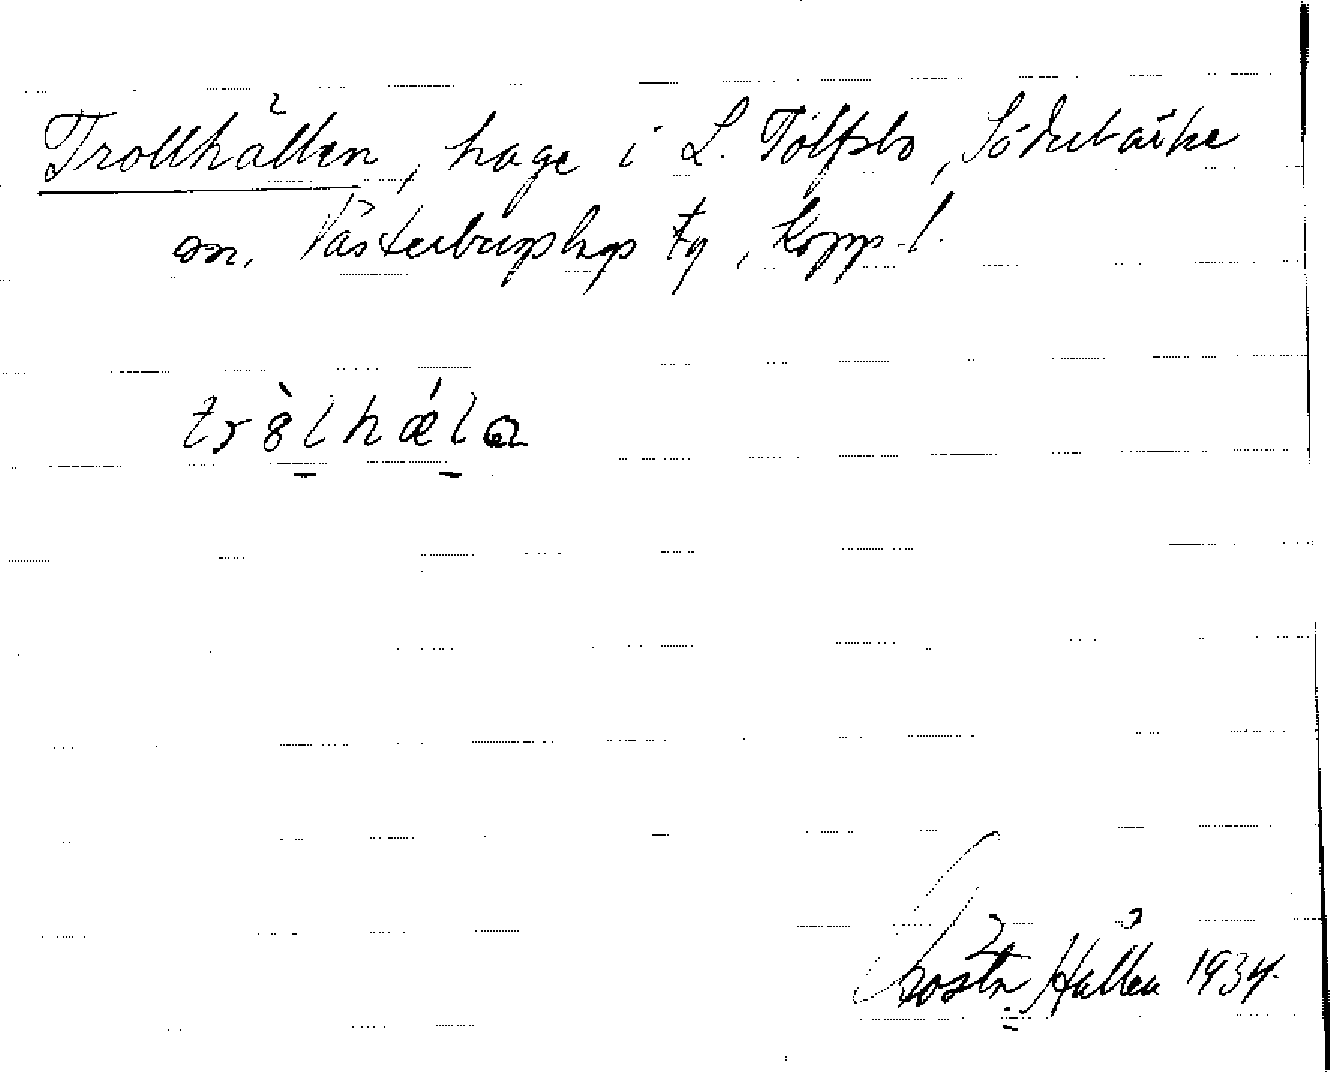 Trollhällen, hage i L. Tolfsbo, Söderbärke
sn, Västerbergslags fg, Kopp. l.
tròlhǽla
Gösta Hällen 1934.